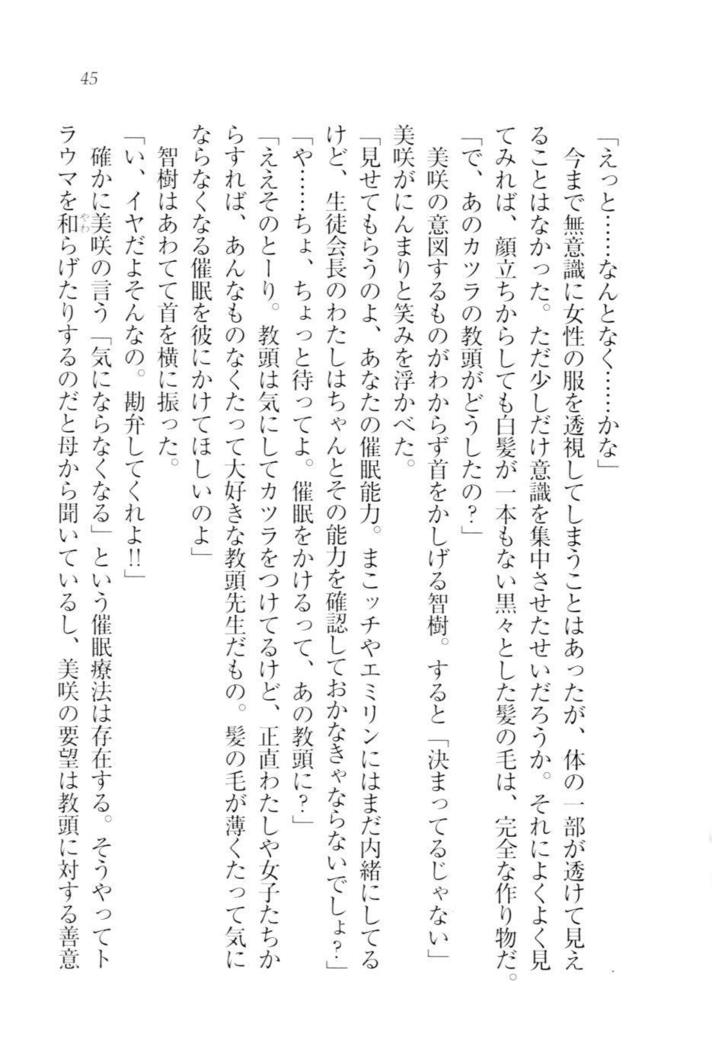 45
「えっと……なんとなく……かな」
　今まで無意識に女性の服を透視してしまうことはあったが、体の一部が透けて見え
ることはなかった。ただ少しだけ意識を集中させたせいだろうか。それによくよく見
てみれば、顔立ちからしても白髪が一本もない黒々とした髪の毛は、完全な作り物だ。
「で、あのカツラの教頭がどうしたの？」
　美咲の意図するものがわからず首をかしげる智樹。すると「決まってるじゃない」
美咲がにんまりと笑みを浮かべた。
「見せてもらうのよ、あなたの催眠能力。まこッチやエミリンにはまだ内緒にしてる
けど、生徒会長のわたしはちゃんとその能力を確認しておかなきゃならないでしょ？」
「や……ちょ、ちょっと待ってよ。催眠をかけるって、あの教頭に？」
「ええそのとーり。教頭は気にしてカツラをつけてるけど、正直わたしや女子たちか
らすれば、あんなものなくたって大好きな教頭先生だもの。髪の毛が薄くたって気に
ならなくなる催眠を彼にかけてほしいのよ」
　智樹はあわてて首を横に振った。
「い、イヤだよそんなの。勘弁してくれよ!!」
　確かに美咲の言う「気にならなくなる」という催眠療法は存在する。そうやってト
ラウマを和やわらげたりするのだと母から聞いているし、美咲の要望は教頭に対する善意